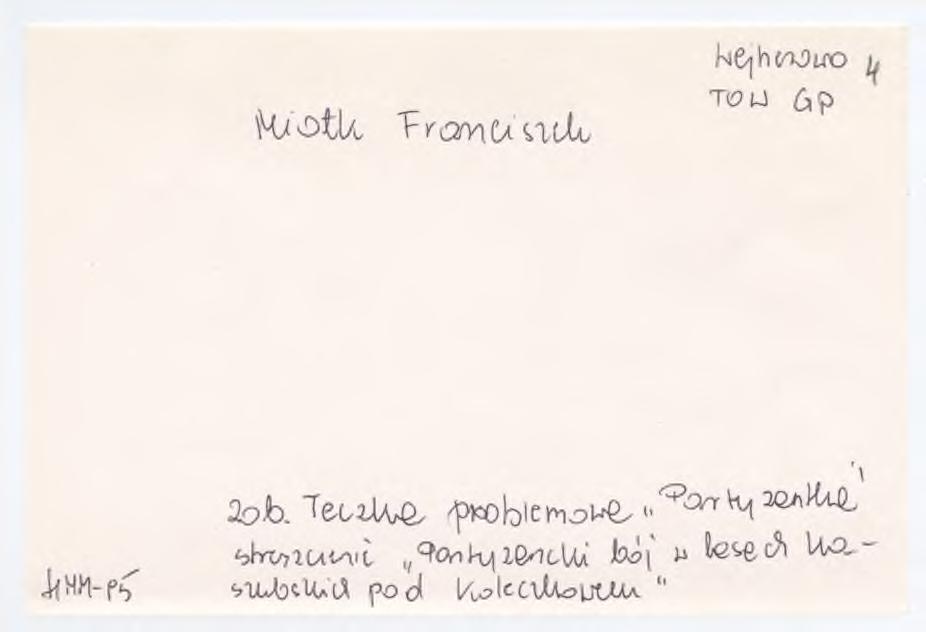 Wejherowo 4
TOW GP
Miotk Franciszek
zob. Teczka problemowa „Partyzantka"
streszczenie „Partyzancki bój w lasach ka-
szubskich pod Koleczkowem"
HMM-P5